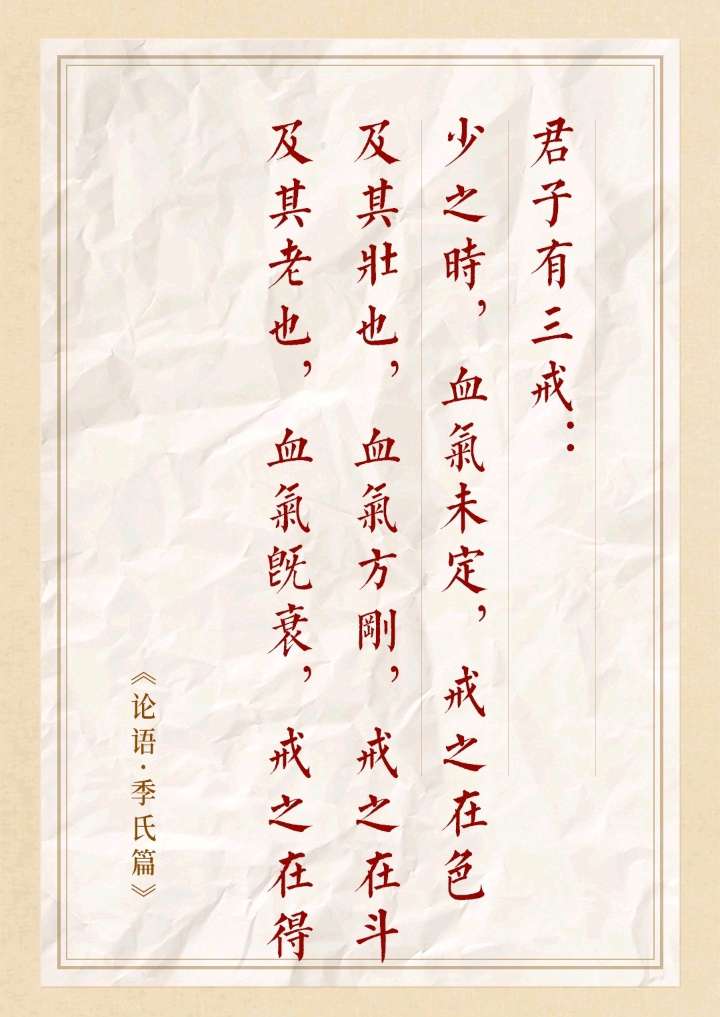 君子有三戒：
少之時，血氣未定，戒之在色
及其壯也，血氣方剛，戒之在斗
及其老也，血氣既衰，戒之在得
《论语·季氏篇》